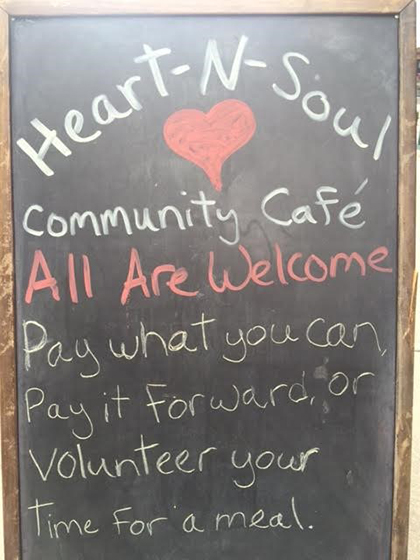 Heart-N-Soul
Community Café
All Are Welcome
Pay what you can,
Pay it forward, or
Volunteer your
time for a meal.